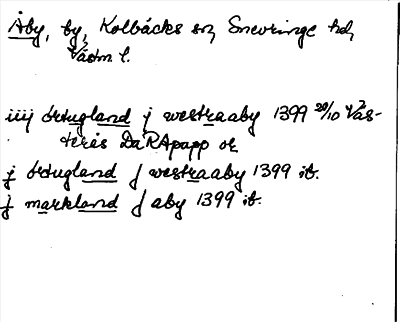 Åby, by, Kolbäcks sn, Snevringe hd,
Västm l.
iiij örtugland j westraaby 1399 20/10 Väs-
terås DaRApapp or
j örtugland j westraaby 1399 ib.
j markland j aby 1399 ib.